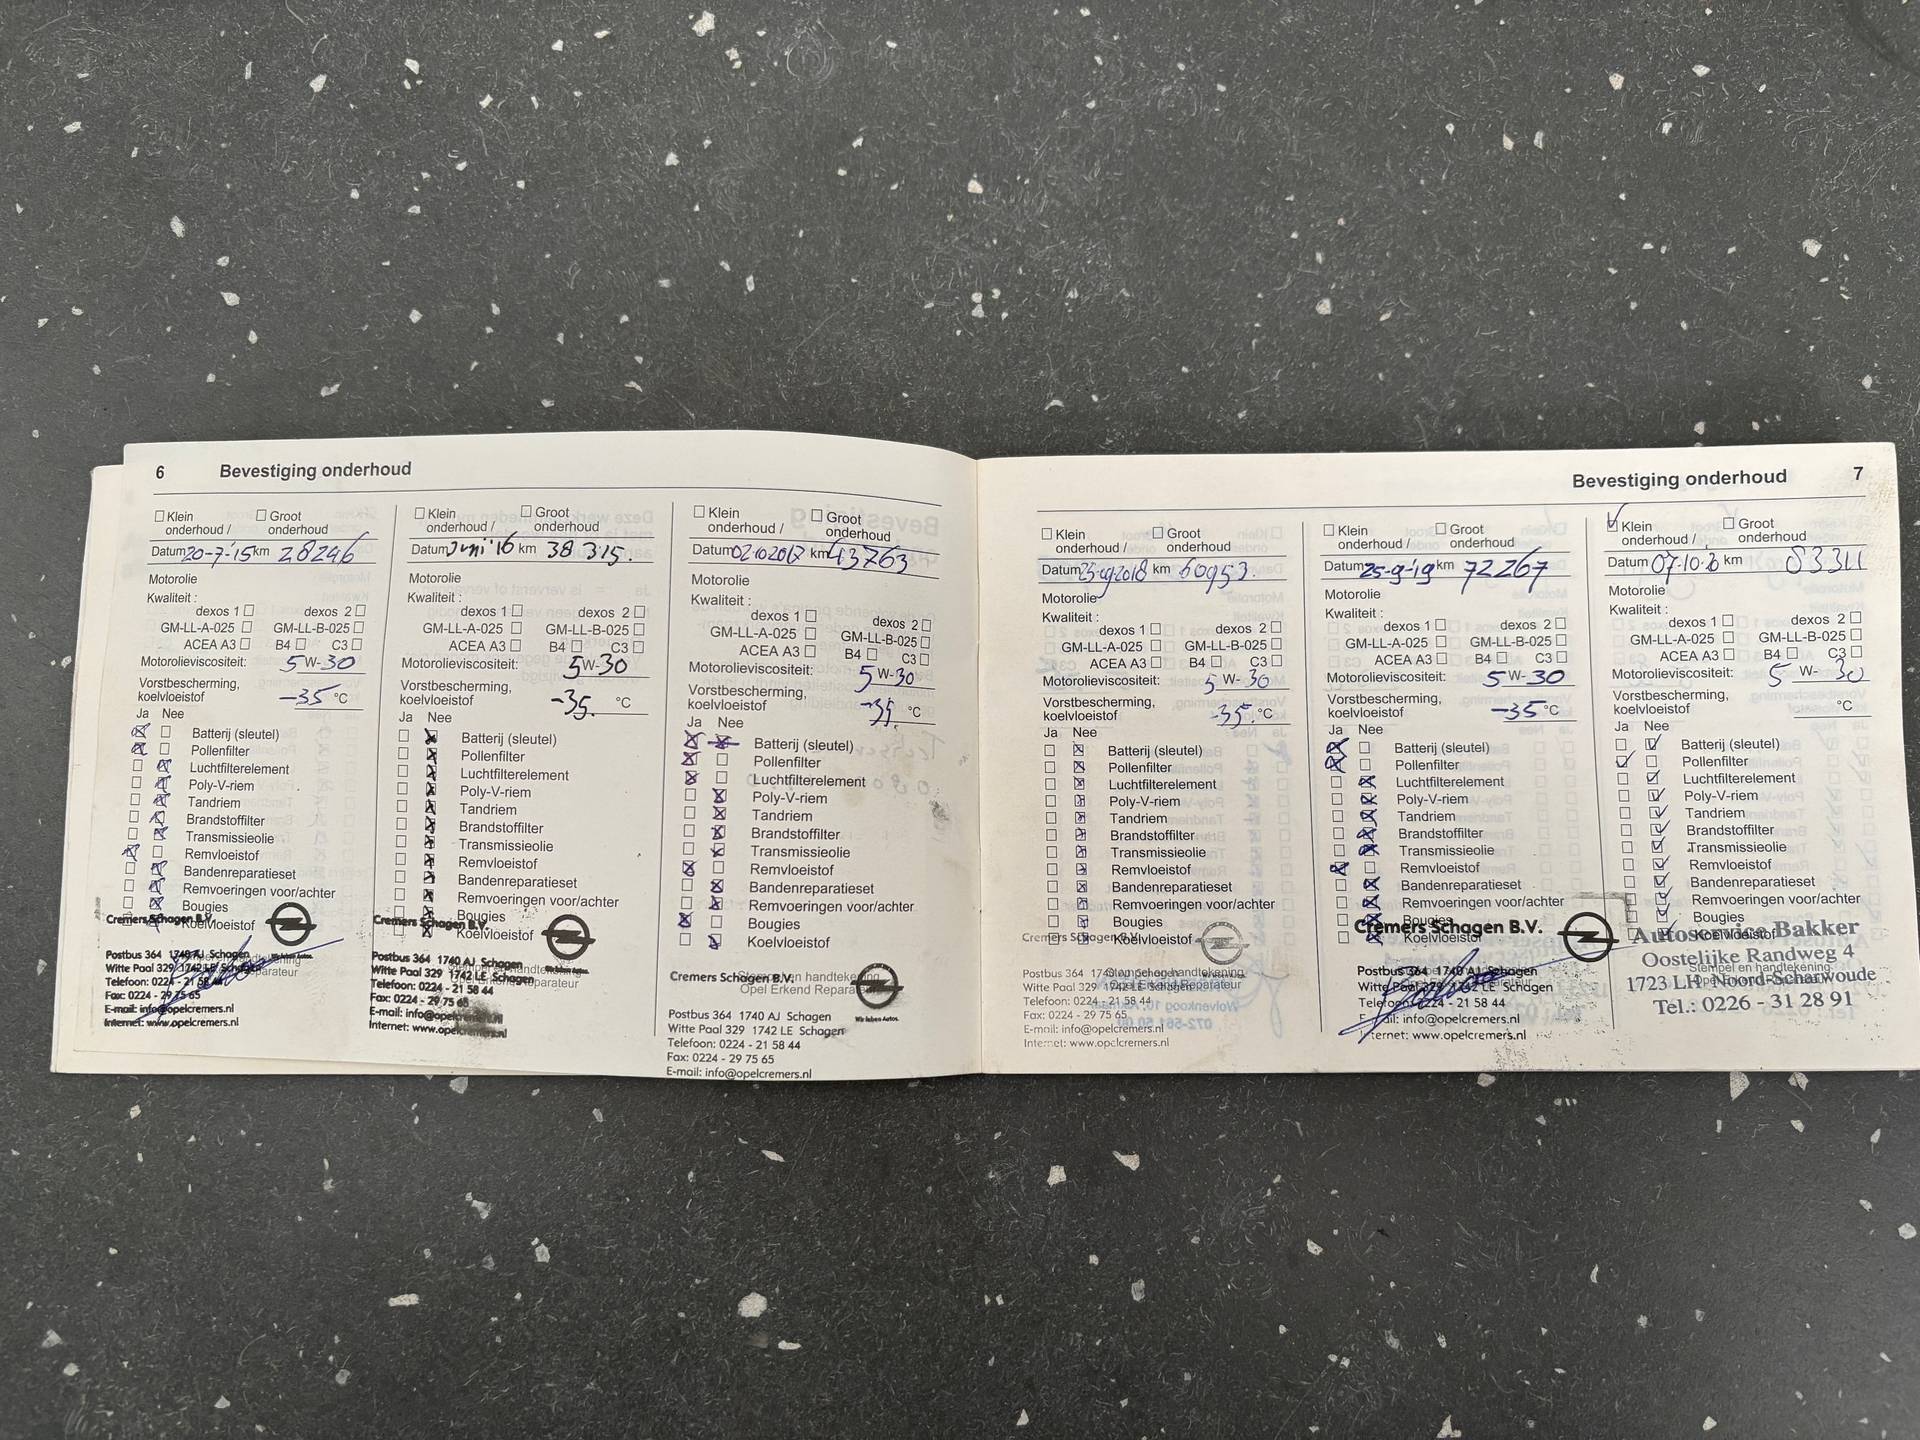 6 Bevestiging onderhoud
☐ Klein onderhoud / ☐ Groot onderhoud
Datum 20-7-'15 km 28246
Motorolie
Kwaliteit :
dexos 1 ☐ dexos 2 ☐
GM-LL-A-025 ☐ GM-LL-B-025 ☐
ACEA A3 ☐ B4 ☐ C3 ☐
Motorolieviscositeit: 5 W- 30
Vorstbescherming,
koelvloeistof -35 °C
Ja Nee
☒ ☐ Batterij (sleutel)
☒ ☐ Pollenfilter
☐ ☒ Luchtfilterelement
☐ ☒ Poly-V-riem
☐ ☒ Tandriem
☐ ☒ Brandstoffilter
☐ ☒ Transmissieolie
☒ ☐ Remvloeistof
☐ ☒ Bandenreparatieset
☐ ☒ Remvoeringen voor/achter
☐ ☒ Bougies
Koelvloeistof
Cremers Schagen B.V.
Postbus 364 1740 AJ Schagen
Witte Paal 329 1742 LE Schagen
Telefoon: 0224 - 21 58 44
Fax: 0224 - 29 75 65
E-mail: info@opelcremers.nl
Internet: www.opelcremers.nl
☐ Klein onderhoud / ☐ Groot onderhoud
Datum Juni '16 km 38315.
Motorolie
Kwaliteit :
dexos 1 ☐ dexos 2 ☐
GM-LL-A-025 ☐ GM-LL-B-025 ☐
ACEA A3 ☐ B4 ☐ C3 ☐
Motorolieviscositeit: 5 W- 30
Vorstbescherming,
koelvloeistof -35. °C
Ja Nee
☐ ☒ Batterij (sleutel)
☐ ☒ Pollenfilter
☐ ☒ Luchtfilterelement
☐ ☒ Poly-V-riem
☐ ☒ Tandriem
☐ ☒ Brandstoffilter
☐ ☒ Transmissieolie
☐ ☒ Remvloeistof
☐ ☒ Bandenreparatieset
☐ ☒ Remvoeringen voor/achter
☐ ☒ Bougies
☐ ☒ Koelvloeistof
Cremers Schagen B.V.
Postbus 364 1740 AJ Schagen
Witte Paal 329 1742 LE Schagen
Telefoon: 0224 - 21 58 44
Fax: 0224 - 29 75 65
E-mail: info@opelcremers.nl
Internet: www.opelcremers.nl
☐ Klein onderhoud / ☐ Groot onderhoud
Datum 02-10-2017 km 43763
Motorolie
Kwaliteit :
dexos 1 ☐ dexos 2 ☐
GM-LL-A-025 ☐ GM-LL-B-025 ☐
ACEA A3 ☐ B4 ☐ C3 ☐
Motorolieviscositeit: 5 W- 30
Vorstbescherming,
koelvloeistof -35 °C
Ja Nee
☒ ☒ Batterij (sleutel)
☒ ☐ Pollenfilter
☒ ☐ Luchtfilterelement
☐ ☒ Poly-V-riem
☐ ☒ Tandriem
☐ ☒ Brandstoffilter
☐ ☒ Transmissieolie
☒ ☐ Remvloeistof
☐ ☒ Bandenreparatieset
☐ ☒ Remvoeringen voor/achter
☒ ☐ Bougies
☐ ☒ Koelvloeistof
Cremers Schagen B.V.
Stempel en handtekening
Opel Erkend Reparateur
Wir leben Autos.
Postbus 364 1740 AJ Schagen
Witte Paal 329 1742 LE Schagen
Telefoon: 0224 - 21 58 44
Fax: 0224 - 29 75 65
E-mail: info@opelcremers.nl
Bevestiging onderhoud 7
☐ Klein onderhoud / ☐ Groot onderhoud
Datum 25-09-2018 km 60953.
Motorolie
Kwaliteit :
dexos 1 ☐ dexos 2 ☐
GM-LL-A-025 ☐ GM-LL-B-025 ☐
ACEA A3 ☐ B4 ☐ C3 ☐
Motorolieviscositeit: 5 W- 30
Vorstbescherming,
koelvloeistof -35. °C
Ja Nee
☐ ☒ Batterij (sleutel)
☐ ☒ Pollenfilter
☐ ☒ Luchtfilterelement
☐ ☒ Poly-V-riem
☐ ☒ Tandriem
☐ ☒ Brandstoffilter
☐ ☒ Transmissieolie
☐ ☒ Remvloeistof
☐ ☒ Bandenreparatieset
☐ ☒ Remvoeringen voor/achter
☐ ☒ Bougies
☐ ☒ Koelvloeistof
Cremers Schagen B.V.
Stempel en handtekening
Postbus 364 1740 AJ Schagen
Witte Paal 329 1742 LE Schagen
Telefoon: 0224 - 21 58 44
Fax: 0224 - 29 75 65
E-mail: info@opelcremers.nl
Internet: www.opelcremers.nl
☐ Klein onderhoud / ☐ Groot onderhoud
Datum 25-9-'19 km 72267
Motorolie
Kwaliteit :
dexos 1 ☐ dexos 2 ☐
GM-LL-A-025 ☐ GM-LL-B-025 ☐
ACEA A3 ☐ B4 ☐ C3 ☐
Motorolieviscositeit: 5 W- 30
Vorstbescherming,
koelvloeistof -35 °C
Ja Nee
☒ ☐ Batterij (sleutel)
☒ ☐ Pollenfilter
☐ ☒ Luchtfilterelement
☐ ☒ Poly-V-riem
☐ ☒ Tandriem
☐ ☒ Brandstoffilter
☐ ☒ Transmissieolie
☒ ☐ Remvloeistof
☐ ☒ Bandenreparatieset
☐ ☒ Remvoeringen voor/achter
☐ ☒ Bougies
☐ ☒ Koelvloeistof
Cremers Schagen B.V.
Postbus 364 1740 AJ Schagen
Witte Paal 329 1742 LE Schagen
Telefoon: 0224 - 21 58 44
Fax: 0224 - 29 75 65
E-mail: info@opelcremers.nl
Internet: www.opelcremers.nl
☑ Klein onderhoud / ☐ Groot onderhoud
Datum 07-10-20 km 83311
Motorolie
Kwaliteit :
dexos 1 ☐ dexos 2 ☐
GM-LL-A-025 ☐ GM-LL-B-025 ☐
ACEA A3 ☐ B4 ☐ C3 ☐
Motorolieviscositeit: 5 W- 30
Vorstbescherming,
koelvloeistof °C
Ja Nee
☐ ☑ Batterij (sleutel)
☑ ☐ Pollenfilter
☐ ☑ Luchtfilterelement
☐ ☑ Poly-V-riem
☐ ☑ Tandriem
☐ ☑ Brandstoffilter
☐ ☑ Transmissieolie
☐ ☑ Remvloeistof
☐ ☑ Bandenreparatieset
☐ ☑ Remvoeringen voor/achter
☐ ☑ Bougies
☐ ☑ Koelvloeistof
Autoservice Bakker
Oostelijke Randweg 4
Stempel en handtekening
1723 LH Noord-Scharwoude
Tel.: 0226 - 31 28 91